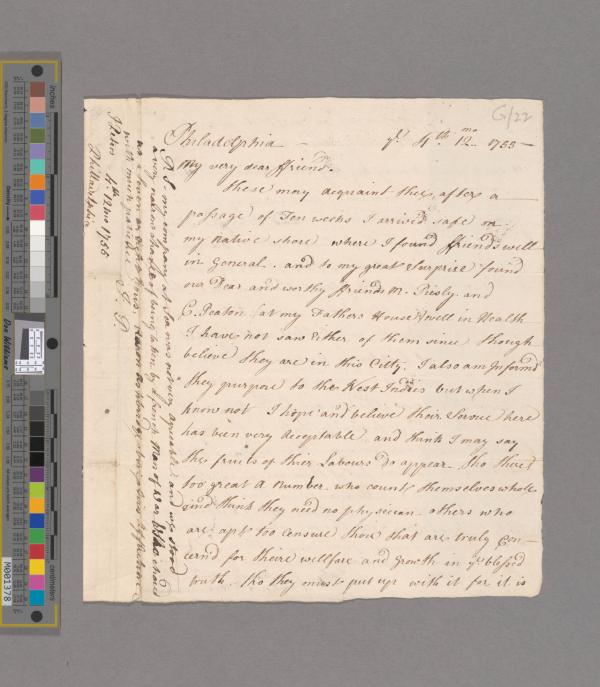 G/22
Philadelphia — ye. 4th. 12mo 1755 —
My very dear ffriend.
These may acquaint thee, after a
passage of Ten weeks I arrived safe on
my native shore where I found ffriends well
in General. and to my great Surprize found
our Dear and worthy ffriends M. Peisly. and
C. Peaton (at my Fathers House) well in Health
I have not saw Either of them since though
believe they are in this Citty, I also am Informd
they purpose to the West Indies but when I
know not I hope and believe their Servue here
has been very acceptable and think I may say
the fruits of thier Labours do appear. tho there's
too great a number who count themselves whole
and think they need no physician others who
are apt too Censure those that are truly Con-
cernd for theire wellfare and growth in ye blessed
truth. tho they must put up with it for it is
P.S. my company at Sea was very agreeable and we stood
a very narrow chance of being taken by french Man of War
with much
J Pelus 4th. 12mo 1755
Phillaidelphia
inches
centimetres
Don Williams
M001378